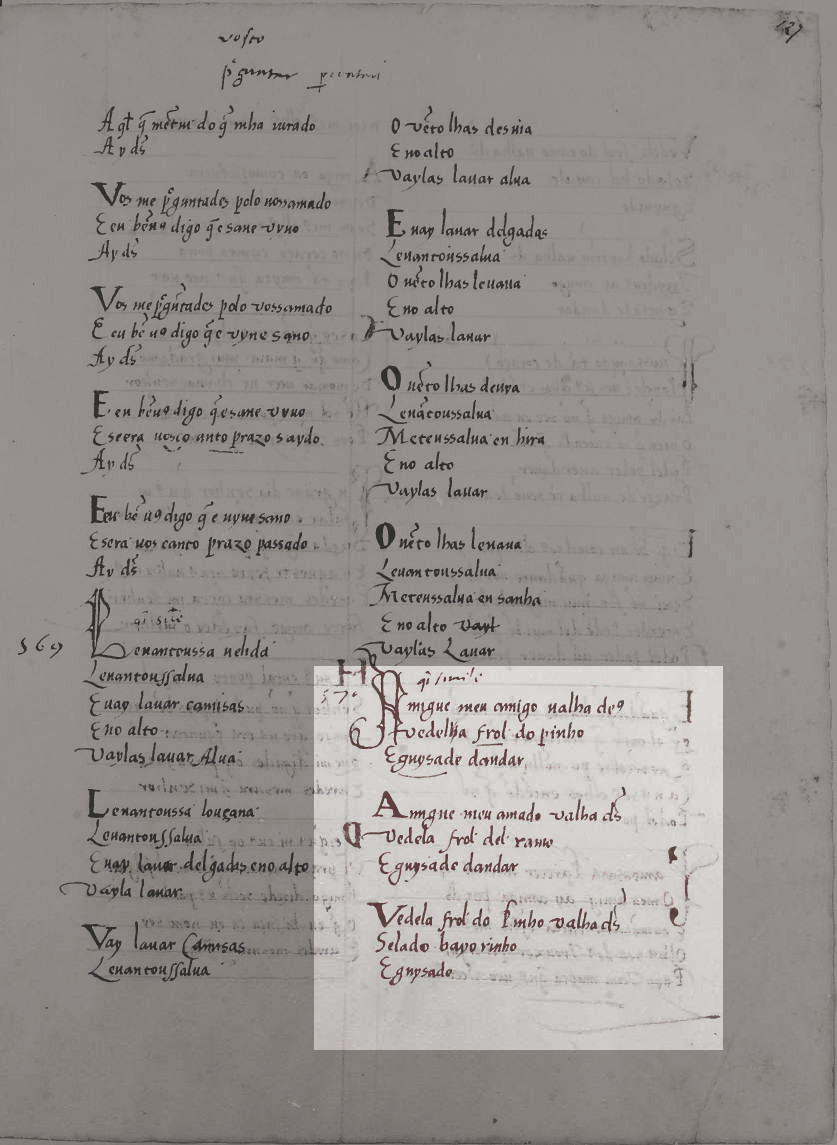 127
vosco
p̃guntar
A q̄l q̄ mẽtiu do q̄ mha iurado
Ay ds̃
Vos me p̃guntades polo uossamado
E eu bẽ uꝯ digo q̄ e sane vyuo
Ay ds̃
Vos me p̃gũtades polo vossamado
E eu bẽ uꝯ digo q̄ e vyne sano
Ay ds̃
E eu bẽ uꝯ digo q̄ e sane vyuo
E seera uosco anto prazo saydo
Ay ds̃
E eu bẽ uꝯ digo q̄ e uyue sano
E sera uos canto prazo passado
Ay ds̃
569
Leuantoussa uelida
Leuantoussalua
E uay lauar camisas
E no alto
Vaylas lauar Alua
Leuantoussa louçana
Leuantoussalua
E uay lauar delgadas eno alto
Vayla lauar
Vay lauar Camisas
Leuantoussalua
O uẽto lhas desuia
E no alto
Vaylas lauar alua
E uay lauar delgadas
Leuantoussalua
O uẽto lhas leuaua
E no alto
Vaylas lauar
O uẽto lhas deuya
Leuãtoussalua
Meteussalua en hira
E no alto
Vaylas lauar
O uẽto lhas leuaua
Leuantoussalua
Meteussalua en sanha
E no alto vayl
Vaylas Lauar
570
Amigue meu amigo ualha deꝯ
Vedelha frol do pinho
E guysade dandar
Amigue meu amado valha ds̃
Vedela frol del ramo
E guysade dandar
Vedela frol do Pinho valha ds̃
Selado bayorinho
E guysade